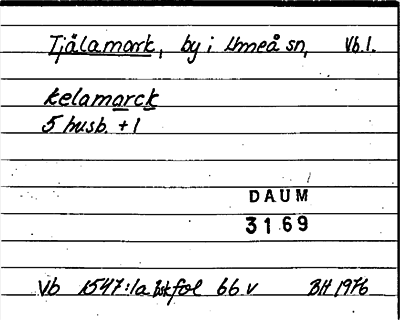 Tjälamark, by i Umeå sn, Vb.l.
kelamarck
5 husb. + 1
DAUM
3169
Vb 1547:1a Bskfol 66 v BH 1976